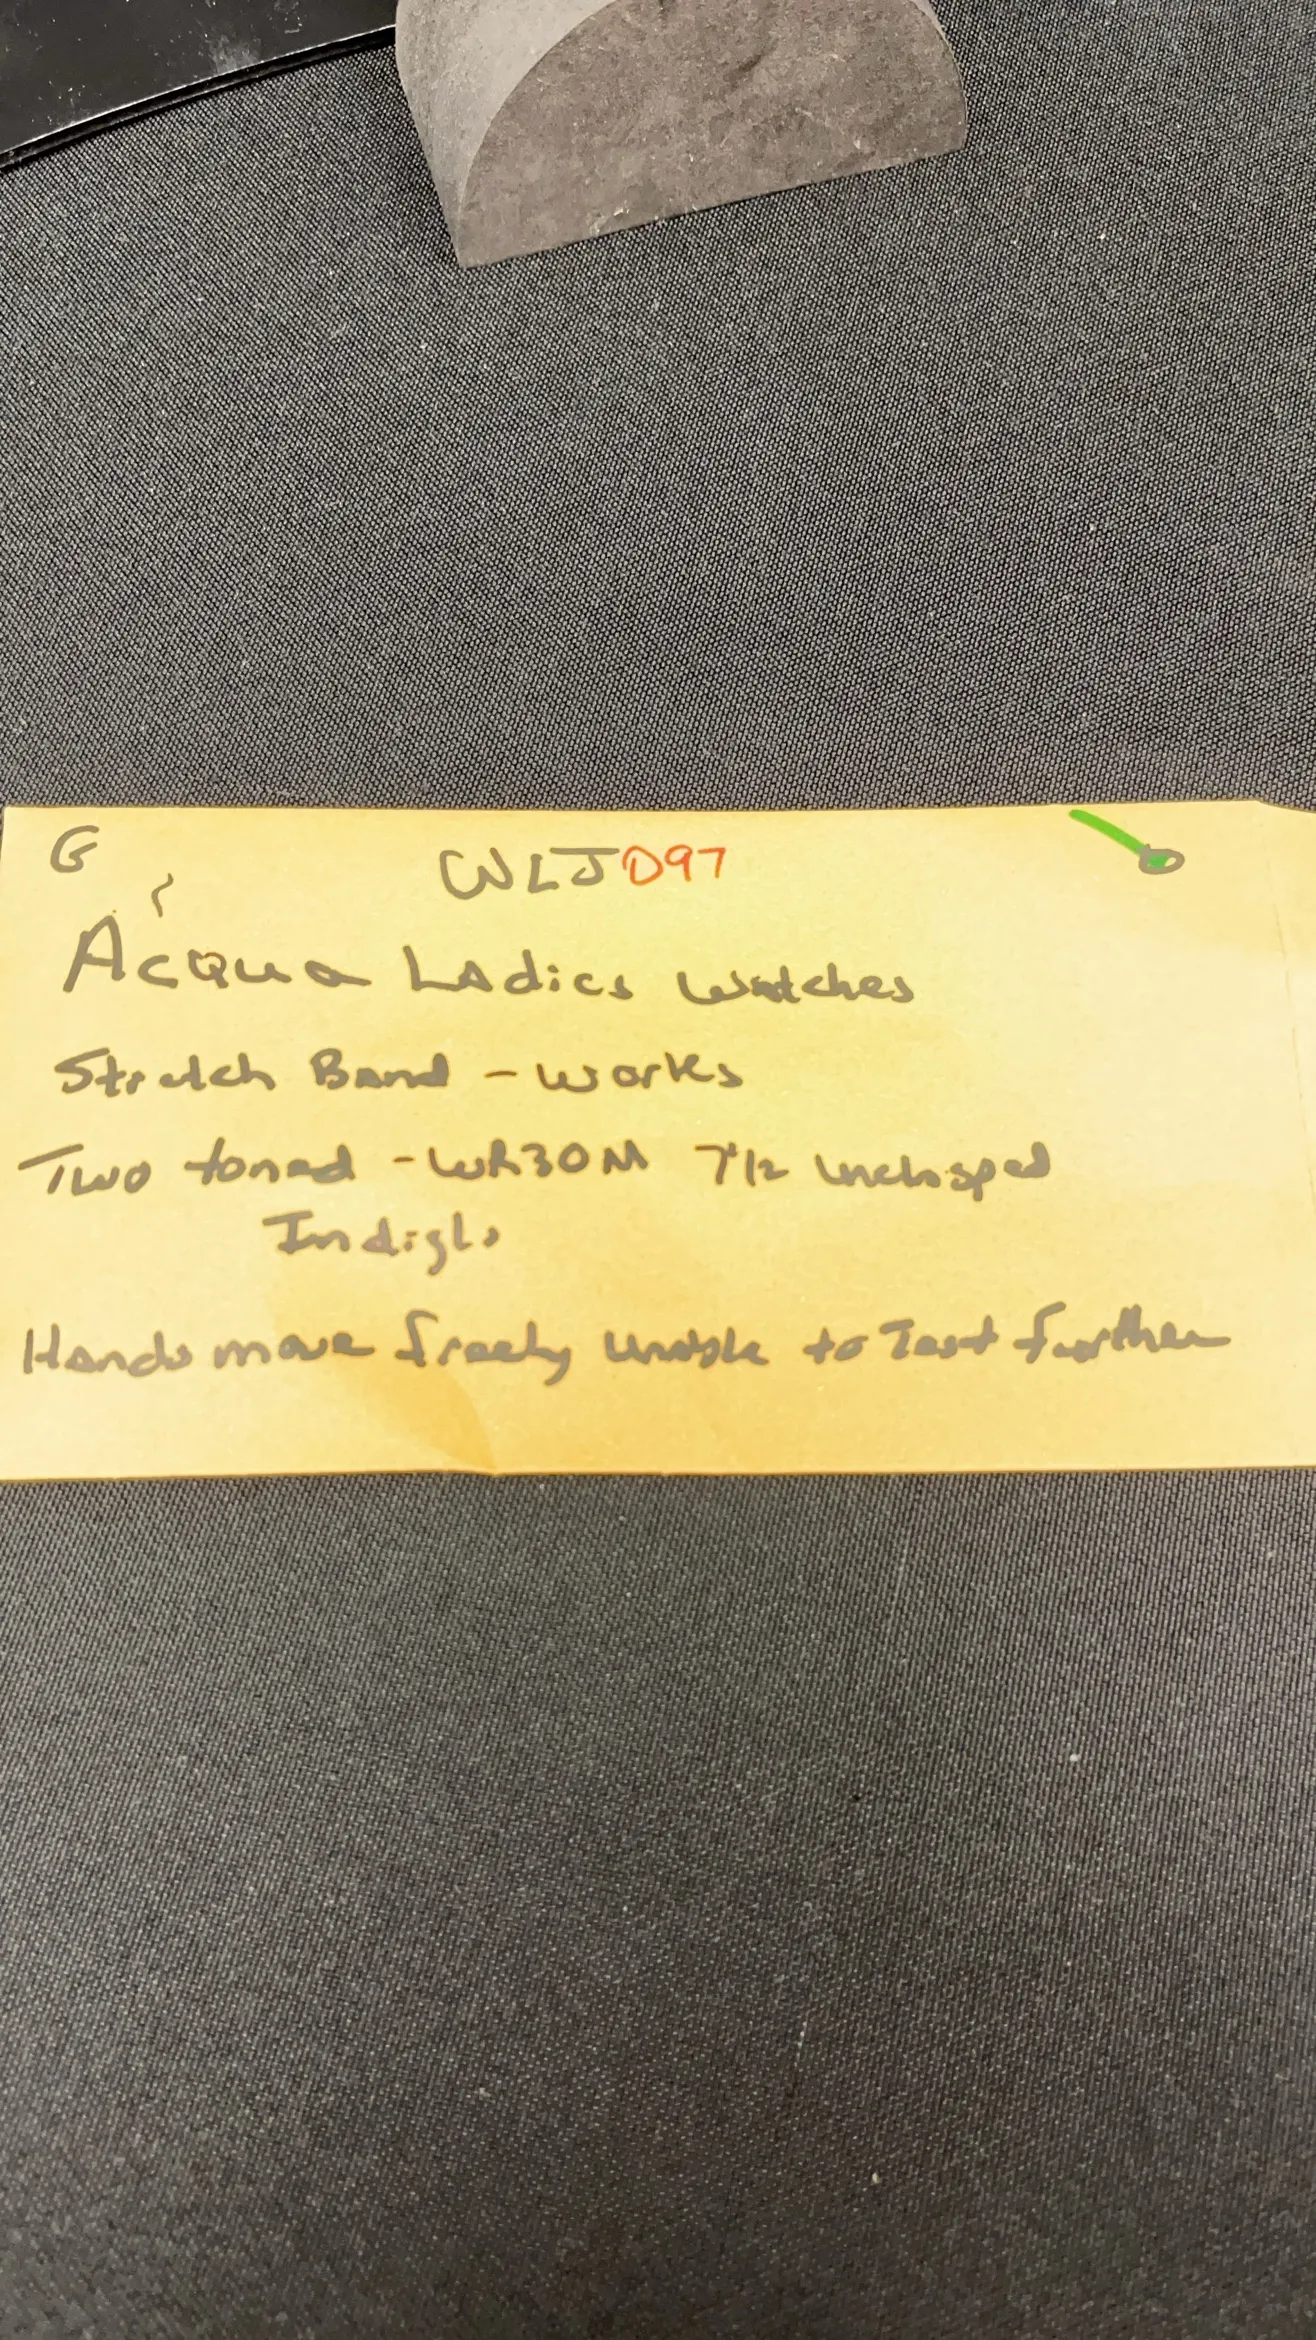 G WLJD97 O
Acqua Ladies Watches
Stretch Band - works
Two toned - WR30M 7 1/2 unclasped
Indiglo
Hands move freely unable to Test further